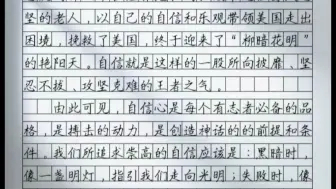 坚的老人，以自己的自信和乐观带领美国走出
困境，挽救了美国，终于迎来了“柳暗花明”
的艳阳天。自信就是这样的一股所向披靡、坚
忍不拔、攻坚克难的王者之气。
由此可见，自信心是每个有志者必备的品
格，是搏击的动力，是创造神话的的前提和条
件。我们所追求崇高的自信应该是：黑暗时，
像一盏明灯，指引我们走向光明；失败时，像